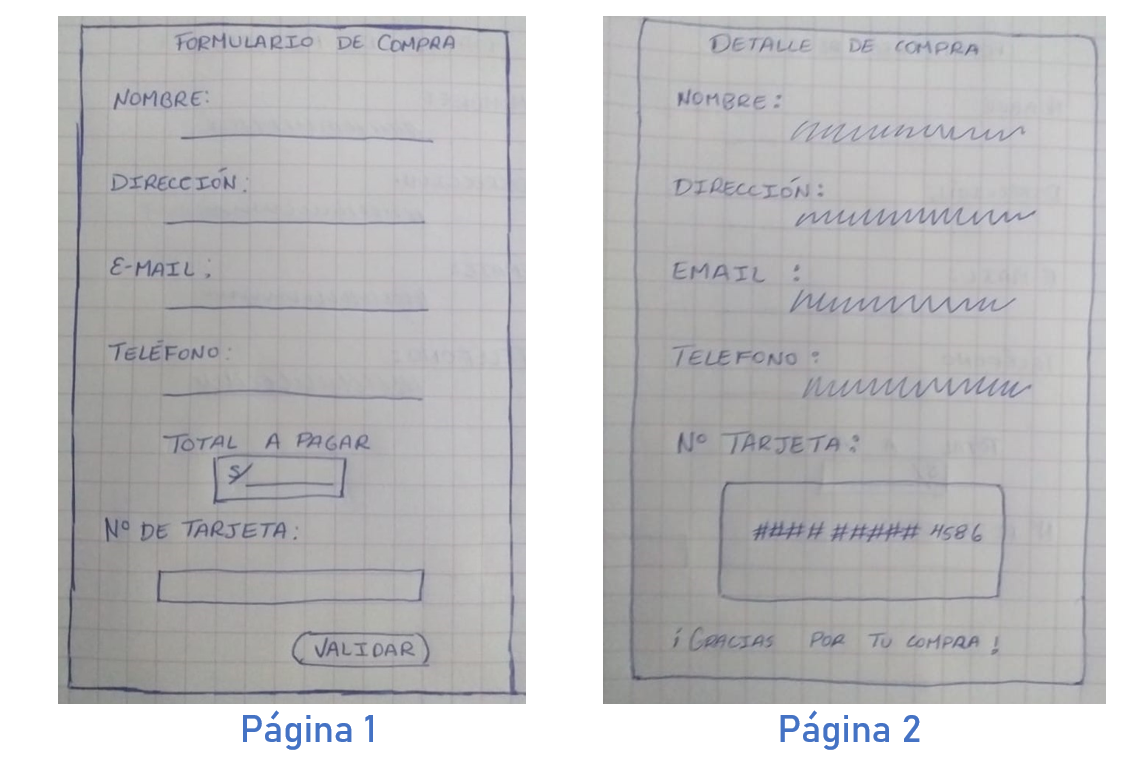 FORMULARIO DE COMPRA
NOMBRE:
DIRECCIÓN:
E-MAIL:
TELÉFONO:
TOTAL A PAGAR
S/
Nº DE TARJETA:
VALIDAR
Página 1
DETALLE DE COMPRA
NOMBRE:
DIRECCIÓN:
EMAIL :
TELEFONO:
Nº TARJETA:
#### ##### 4586
¡GRACIAS POR TU COMPRA!
Página 2